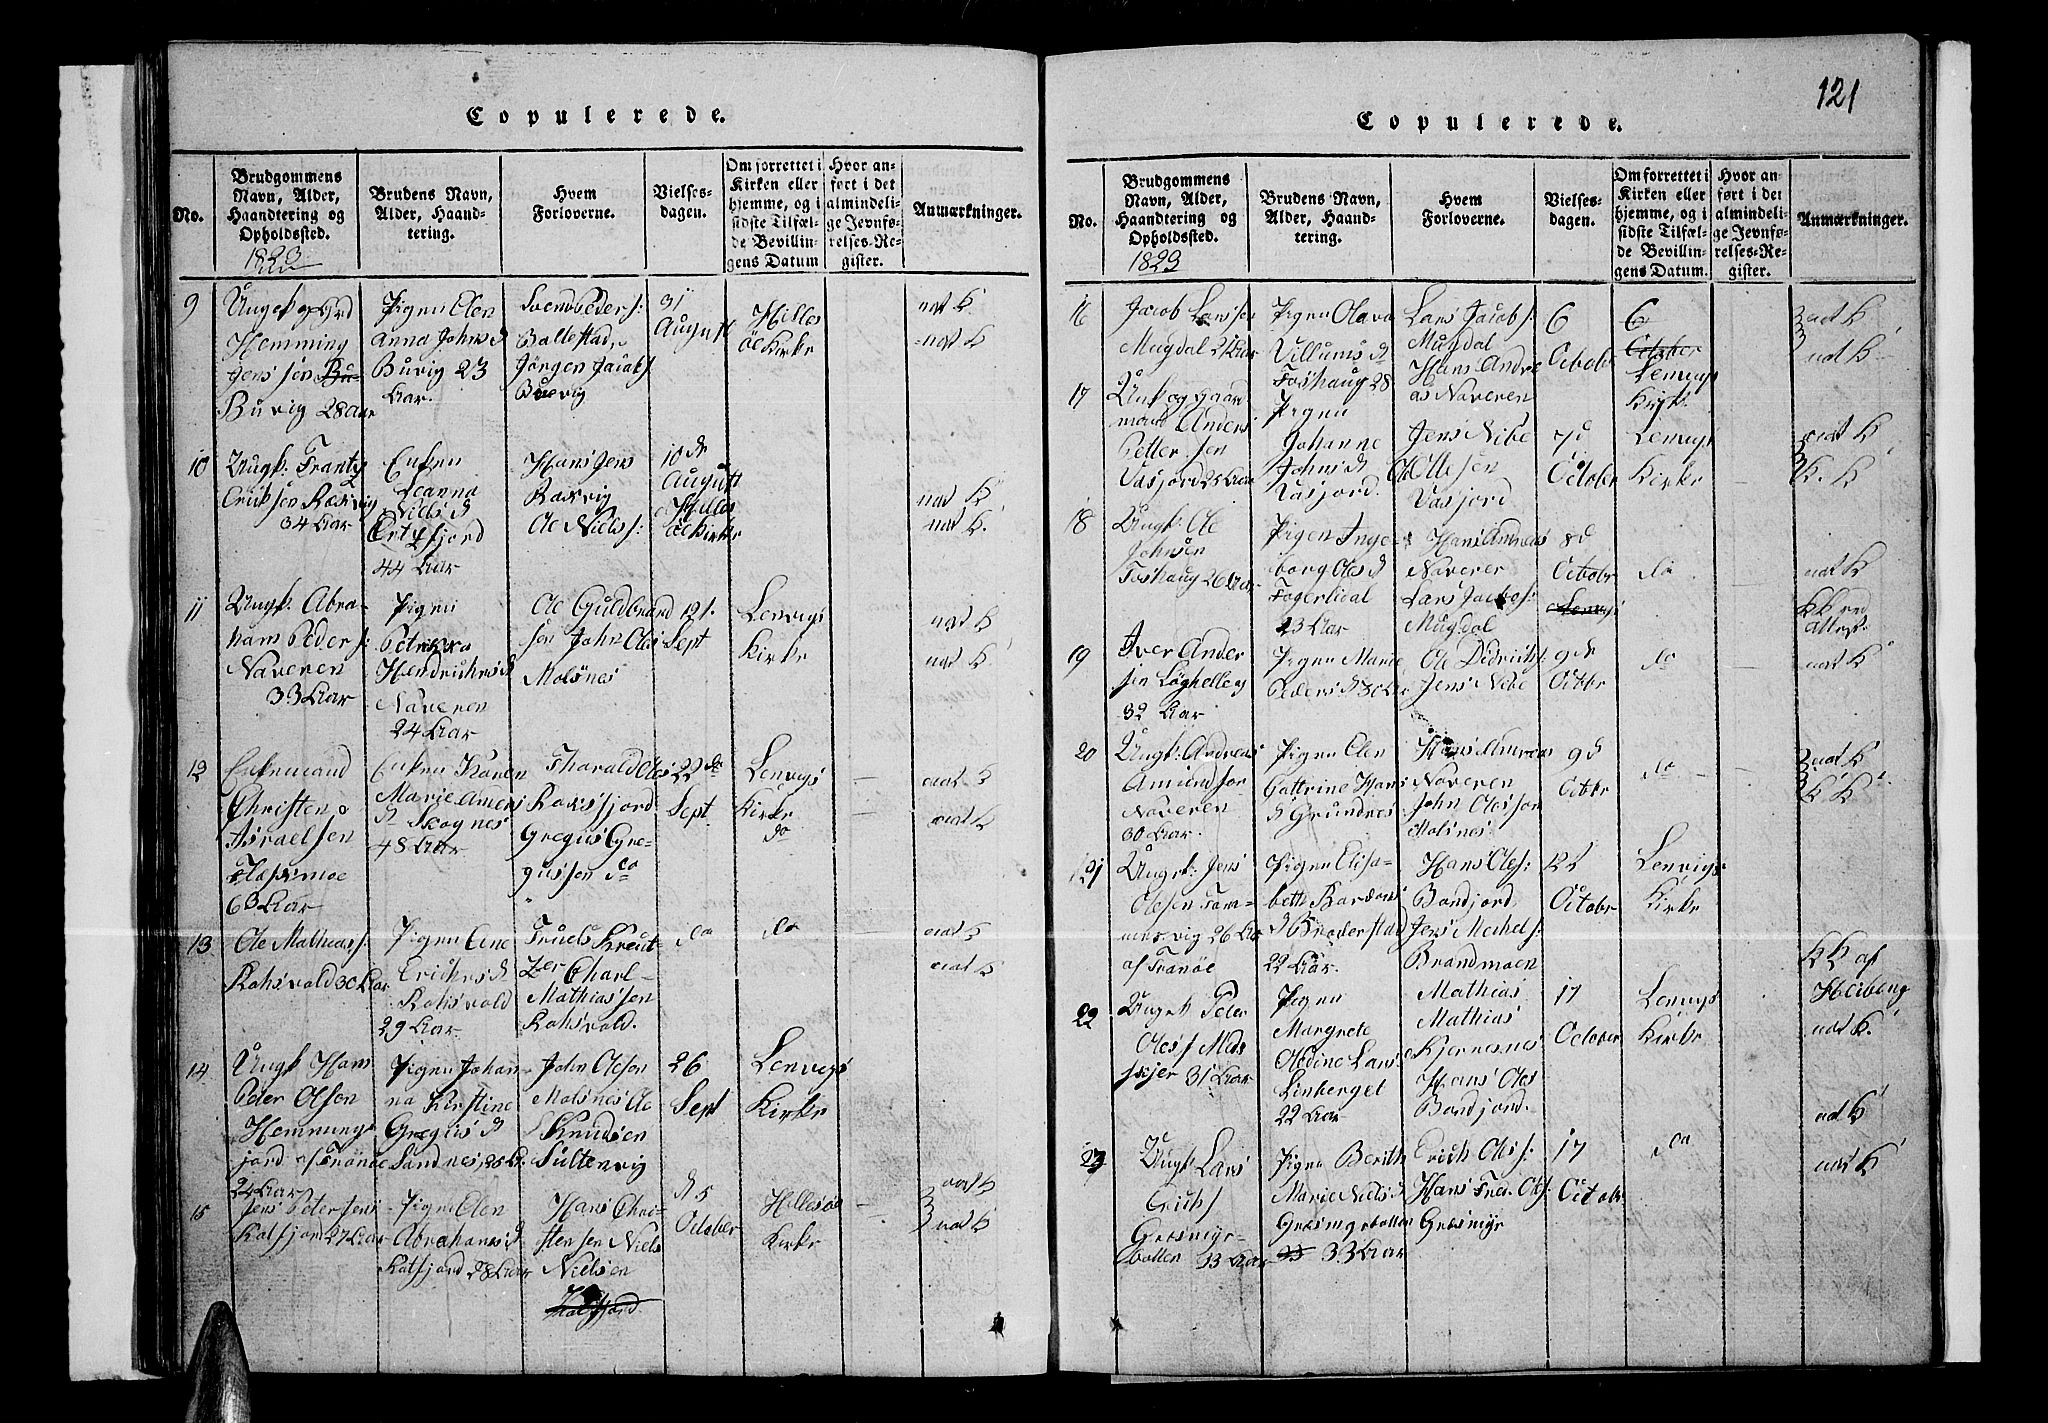 121
Copulerede.
No.
Brudgommens
Navn, Alder,
Haandtering og
Opholdssted.
1823
Brudens Navn,
Alder, Haand-
tering.
Hvem
Forloverne.
Vielses-
dagen.
Om forrettet i
Kirken eller
hjemme, og i
sidste Tilfæl-
de Bevillin-
gens Datum
Hvor an-
ført i det
almindeli-
ge Jevnfø-
relses-Re-
gister.
Anmærkninger.
9
Hemming
Jenssen
Buvig 28 Aar
Pigen Elen
Anna Johnsd
Buvig 23
Aar.
Svend Peders:
Ballestad,
Jørgen Jacobs
Buvig
31
August
Hilles
øe Kirke
nat K
nat K
10
Ungk: Frantz
Ericksen
34 Aar
Enken
Leanna
Nielsd
44 Aar
Hans Jens
Ole Niels:
10de
August
Hilles
øe Kirke
nat K
nat K.
11
Ungk: Abra-
ham Peders:
Naveren
33 Aar
Pigen
Hendrichsd
Naveren
24 Aar
Ole Guldbrand
sen John Oles
Molsnes
19 s.
Sept
Lenvigs
Kirke
nat K
nat K
12
Enkemand
Christen
Israelsen
63 Aar
Enken Karen
Marie
d Skognes
48 Aar
Tharald Oles
Gregus Gre-
gussen do
22 do
Sept
Lenvigs
Kirke
do
nat K
nat K
13
Ole Mathias:
Rossvold 30 Aar
Pigen Ene
Erichsd
Rossvold
29 Aar
Truels Kreut-
zer Charl-
Mathiassen
Rossvold.
do
do
nat K
nat K
14
Ungk Hans
Peder Olsen
Hemmings
jord af Tranøe
24 Aar
Pigen Johan-
na Kirstine
Gregus d
Sandnes
John Olsen
Molsnes Ole
Knudsen
Sultenvig
26
Sept
Lenvigs
Kirke
15
Jens Petersens
Katfjord 27 Aar
Pigen Elen
Abrahamsd
Katfjord 28 Aar
Hans Chri-
stensen Niels
Nielsen
Katfjord.
d 5
October
Hillesøe
Kirke
nat K
nat K
Copulerede.
No.
Brudgommens
Navn, Alder,
Haandtering og
Opholdssted.
1823
Brudens Navn,
Alder, Haand-
tering.
Hvem
Forloverne.
Vielses-
dagen.
Om forrettet i
Kirken eller
hjemme, og i
sidste Tilfæl-
de Bevillin-
gens Datum.
Hvor an-
ført i det
almindeli-
ge Jevnfø-
relses-Re-
gister.
Anmærkninger.
16
Jacob Larssen
Mugdal 21 Aar
Pigen Olava
Villums d
Fosshaug 28
Lars Jacobs:
Mugdal
Hans Andre
as Naveren
6
October
6
October
Lenvigs
Kirke
nat K
nat K
17
Ungk og gaar
mand Anders
Pettersen
Vasjord 25 Aar
Pigen
Johanne
Johnsd
Vasjord.
Jens Nibe
Ole Olsen
Vasjord
7d
October
Lenvigs
Kirke
nat K
K. K
18
Ungk: Ole
Johnsen
Fosshaug 26 Aar
Pigen Inge-
borg Olesd
Fogerlidal
23 Aar
Hans Andreas
Naveren
Lars Jacobs:
Mugdal
8d
October
Lenvigs
do
nat K
KK ved
attest
19
Iver Ander
sen Løghelle
32 Aar
Pigen Marie
Pedersd 30 Aar
Ole Didrichs:
Jens Nibe
9de
Octbr
do
nat K
20
Ungk: Andreas
Amundsen
Naveren
30 Aar.
Pigen Elen
Cattrine Hans
d Grundnes
Hans Andreas
Naveren
John Olessen
Molsnes
9d
Octbr
do
nat K
K K
21
Ungk: Jens
Olesen Tom-
mersvig 26 Aar
af Tranöe
Pigen Elisa-
beth Bardons
d Brøderstad
22 Aar.
Hans Oles:
Bondjord
Jens Michels:
Brandmoen
12t
October
Lenvigs
Kirke
KK af
22
Ungk Peter
Oless Meds
skjer 31 Aar
Pigen
Margrete
Oledine Lars
Linberget
22 Aar
Mathias
Mathias
Kjernesnes
Hans Oles
Bondjord.
17
October
Lenvigs
Kirke
nat K.
nat K
23
Ungk Lars
Erichs
Græsmyr-
botten 33 Aar
Pigen Berith
Marie Nielsd
Græsmyrbotten
33 Aar
Erich Oles:
Hans Fred. Ols:
Græsmyr
17
October
do
nat K